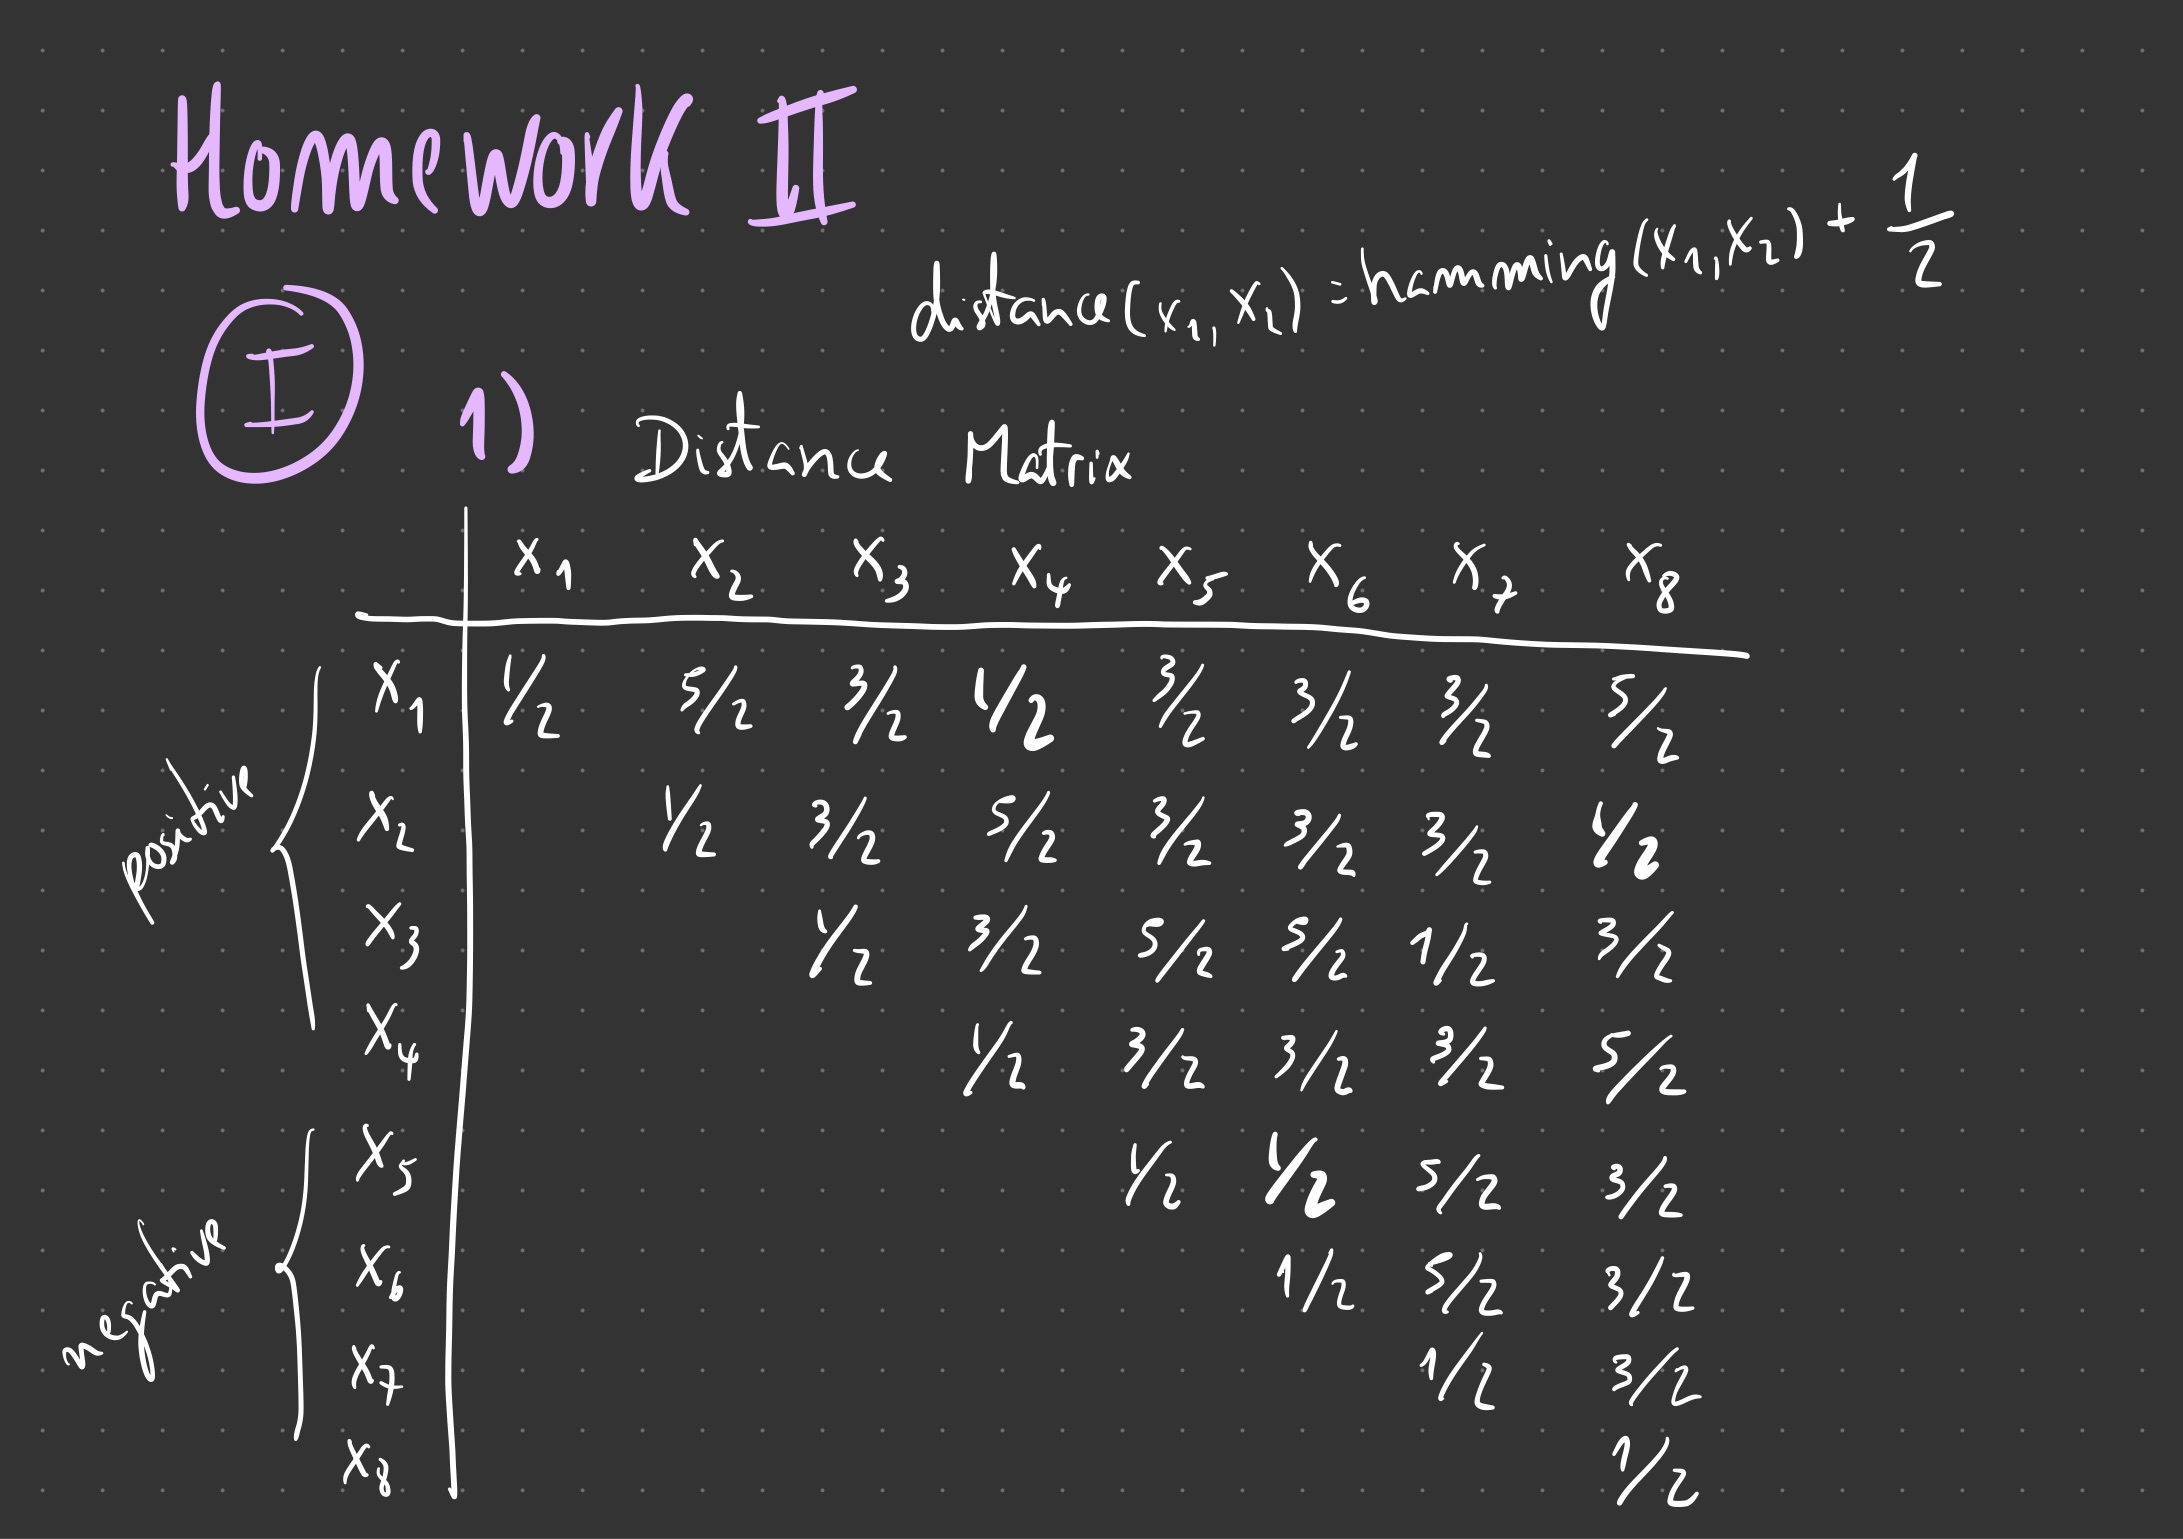 Homework II
distance(x₁, x₂) = hamming(x₁, x₂) + 1/2
I 1) Distance Matrix
x₁ x₂ x₃ x₄ x₅ x₆ x₇ x₈
positive
x₁ 1/2 5/2 3/2 1/2 3/2 3/2 3/2 5/2
x₂ 1/2 3/2 5/2 3/2 3/2 3/2 1/2
x₃ 1/2 3/2 5/2 5/2 1/2 3/2
x₄ 1/2 3/2 3/2 3/2 5/2
negative
x₅ 1/2 1/2 5/2 3/2
x₆ 1/2 5/2 3/2
x₇ 1/2 3/2
x₈ 1/2